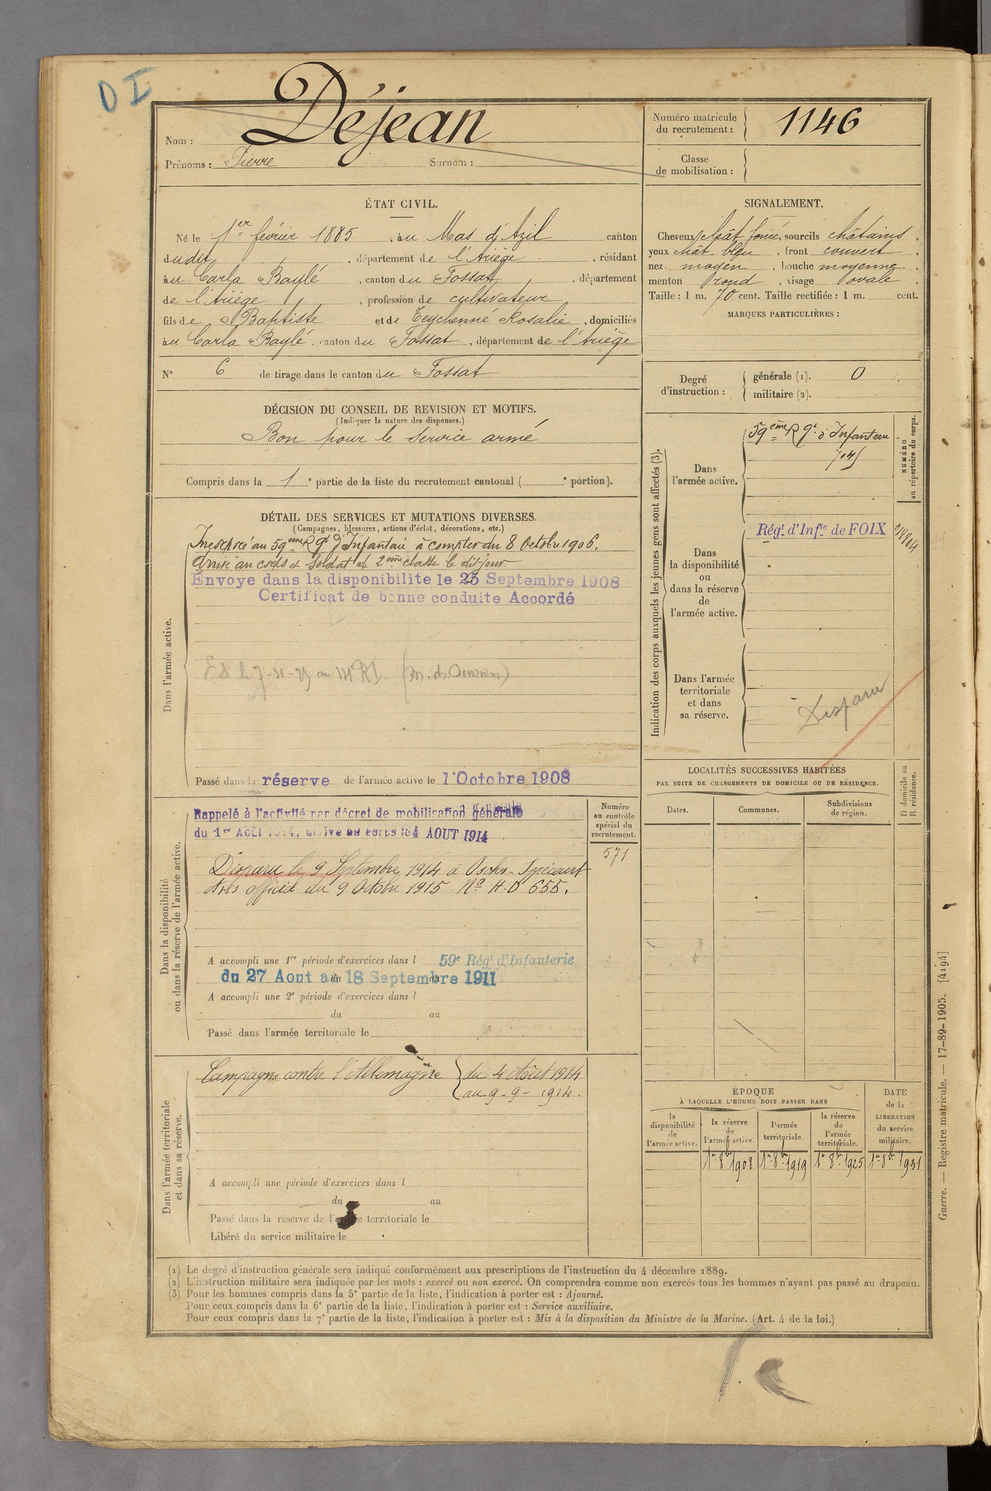 D I
Nom : Déjean
Prénoms : Pierre Surnom :
Numéro matricule du recrutement : 1146
Classe de mobilisation :
ÉTAT CIVIL.
Né le 1er février 1885, au Mas d'Azil canton
dudit, département de l'Ariège, résidant
au Carla Baylé, canton du Fossat, département
de l'Ariège, profession de cultivateur
fils de Baptiste et de Teychenné Rosalie, domiciliés
au Carla Baylé, canton du Fossat, département de l'Ariège
N° 6 de tirage dans le canton du Fossat
SIGNALEMENT.
Cheveux chât foncé, sourcils châtains,
yeux chât bleu, front couvert,
nez moyen, bouche moyenne,
menton rond, visage ovale
Taille : 1 m. 70 cent. Taille rectifiée : 1 m. cent.
MARQUES PARTICULIÈRES :
Degré d'instruction : générale (1). 0
militaire (2).
DÉCISION DU CONSEIL DE REVISION ET MOTIFS.
(Indiquer la nature des dispenses.)
Bon pour le service armé
Compris dans la 1e partie de la liste du recrutement cantonal ( e portion).
DÉTAIL DES SERVICES ET MUTATIONS DIVERSES.
(Campagnes, blessures, actions d'éclat, décorations, etc.)
Dans l'armée active.
Incorporé au 59eme Rgt d'Infanterie à compter du 8 Octobre 1906.
Arrivé au corps et Soldat de 2eme classe le dit jour
Envoye dans la disponibilite le 25 Septembre 1908
Certificat de bonne conduite Accordé
Passé dans la réserve de l'armée active le 1 Octobre 1908
Indication des corps auxquels les jeunes gens sont affectés (3).
NUMÉRO au répertoire du corps.
Dans l'armée active.
59eme Rgt d'Infanterie
Dans la disponibilité ou dans la réserve de l'armée active.
Régt d'Infie de FOIX
Dans l'armée territoriale et dans sa réserve.
Disparu
LOCALITÉS SUCCESSIVES HABITÉES
PAR SUITE DE CHANGEMENTS DE DOMICILE OU DE RÉSIDENCE.
Dates. Communes. Subdivisions de région.
D domicile ou R résidence.
Dans la disponibilité ou dans la réserve de l'armée active.
Numéro au contrôle spécial du recrutement.
571
Rappelé à l'activité par décret de mobilisation générale
du 1er Août 1914, arrivé au corps le 4 AOUT 1914
Disparu le 9 Septembre 1914 à Osches-Ippécourt
Avis officiel du 9 Octobre 1915 No H.D 655.
A accompli une 1re période d'exercices dans l 59e Régt d'Infanterie
du 27 Aout au 18 Septembre 1911
A accompli une 2e période d'exercices dans l
du au
Passé dans l'armée territoriale le
Dans l'armée territoriale et dans sa réserve.
Campagne contre l'Allemagne du 4 Août 1914
au 9-9-1914.
A accompli une période d'exercices dans l
du au
Passé dans la réserve de l'armée territoriale le
Libéré du service militaire le
ÉPOQUE
À LAQUELLE L'HOMME DOIT PASSER DANS
la disponibilité de l'armée active.
la réserve de l'armée active.
l'armée territoriale.
la réserve de l'armée territoriale.
DATE de la LIBÉRATION du service militaire.
1er 8bre 1908 1er 8bre 1919 1er 8bre 1925 1er 8bre 1931
(1) Le degré d'instruction générale sera indiqué conformément aux prescriptions de l'instruction du 4 décembre 1889.
(2) L'instruction militaire sera indiquée par les mots : exercé ou non exercé. On comprendra comme non exercés tous les hommes n'ayant pas passé au drapeau.
(3) Pour les hommes compris dans la 5e partie de la liste, l'indication à porter est : Ajourné.
Pour ceux compris dans la 6e partie de la liste, l'indication à porter est : Service auxiliaire.
Pour ceux compris dans la 7e partie de la liste, l'indication à porter est : Mis à la disposition du Ministre de la Marine. (Art. 4 de la loi.)
Guerre. — Registre matricule. — 17-89-1905. [4194]